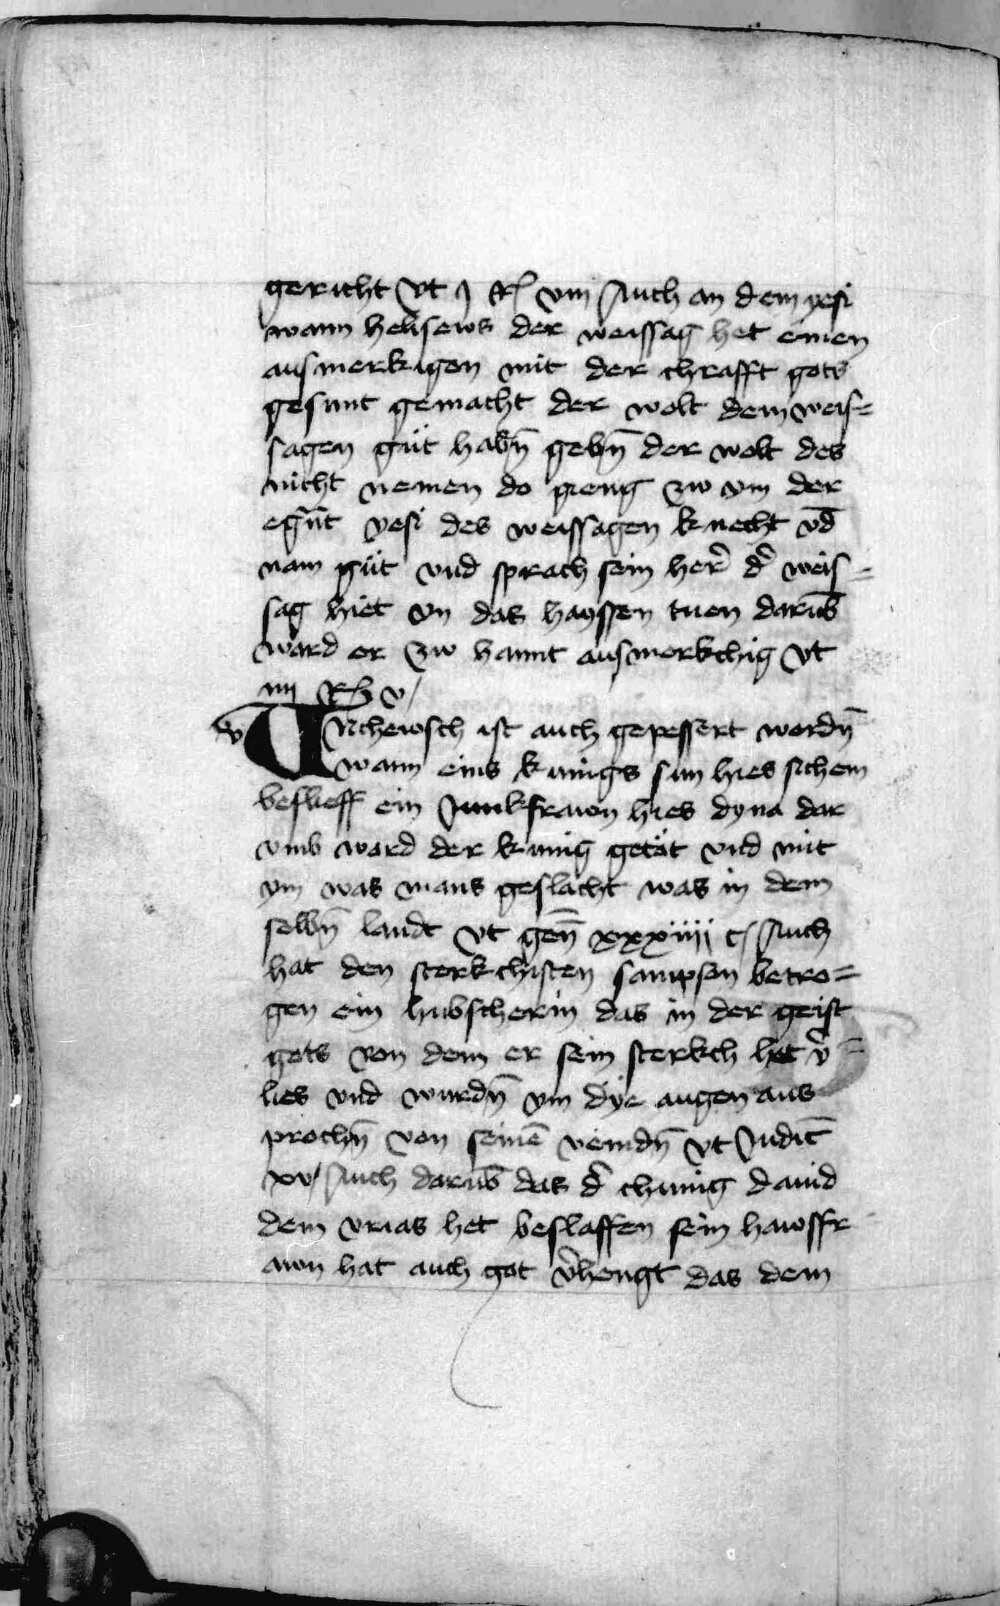 gericht Vt j Rß viij Auch an dem yesi
wann helisews der weissag het einen
ausmerkigen mit der chrafft gots
gesunt gemacht der wolt dem weis=
sagen güt habn̄ gebn̄ der wolt des
nicht nemen do gieng zw ym der
egn̄nt yesi des weissagen knecht vd̄
nam güt vnd sprach sein her̄ d̄ weis=
sag hiet yn das hayssen tuen darūb
ward er zw hannt ausmerkchig Vt
iiij Rß v
v
VNchewsch ist auch gepessert wordn̄
wann eins kunigs sun hies sichem
beslieff ein Junkfrawn hies dyna dar
vmb ward der kunig getöt vnd mit
ym was mans geslacht was in dem
selbn̄ landt Vt gen̄ xxxiiij c Auch
hat den sterkchisten sampson betro=
gen ein hubscherin das in der geist
gots von dem er sein sterkch het v̄=
lies vnd wurdn̄ ym dye augen aus
prochn̄ von seinē veindn̄ Vt Judic̄
xv Auch darūb das d̄ chunig dauid
dem vrias het beslaffen sein hawsfr
awn hat auch got v̄hengt das dem